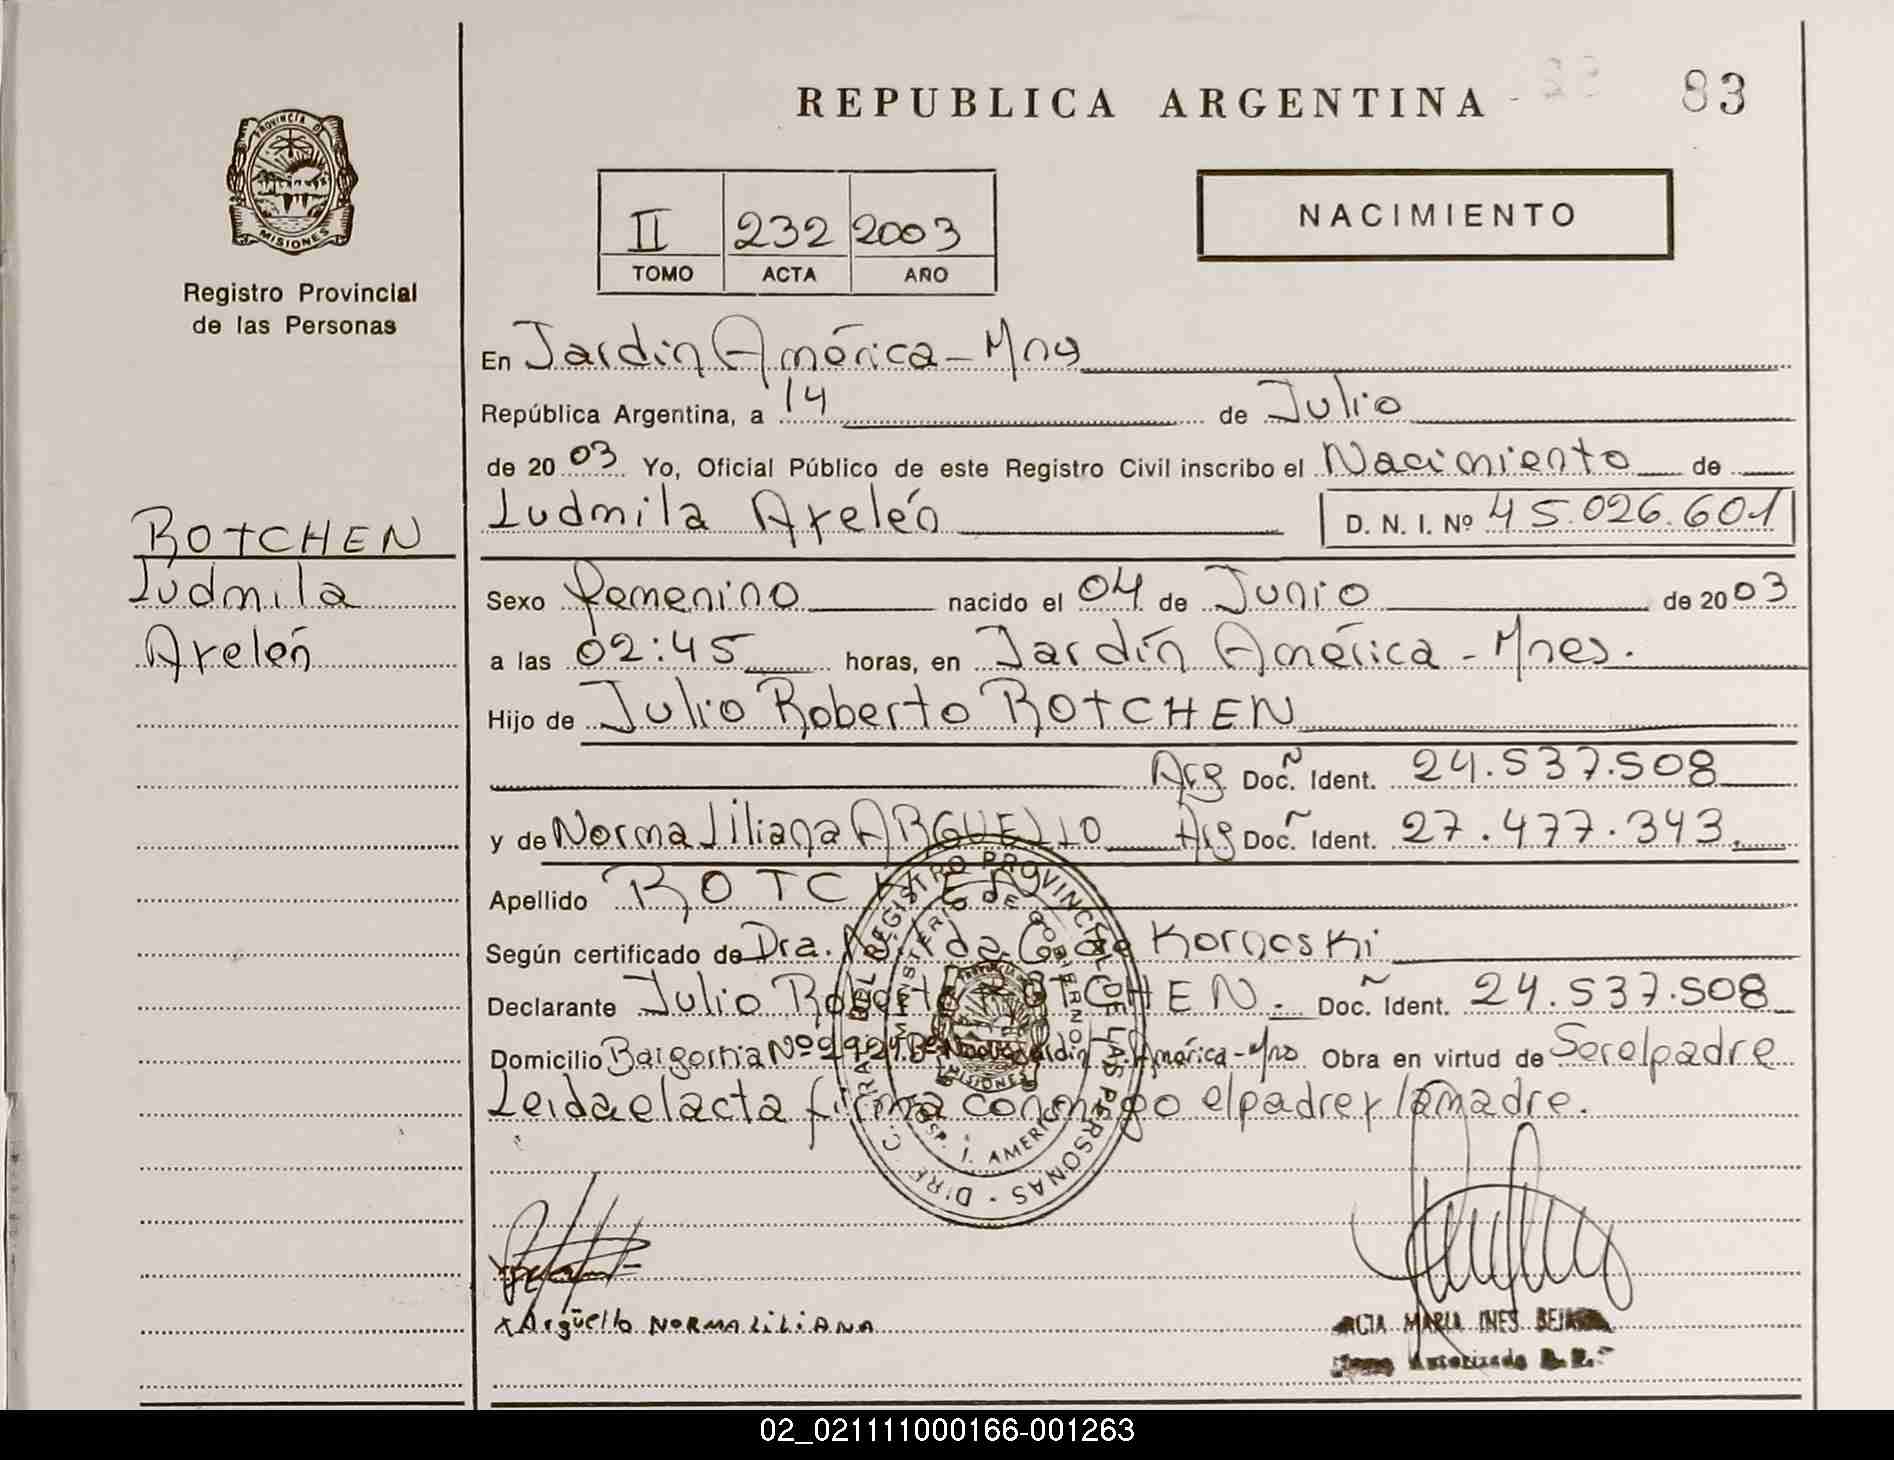 REPUBLICA ARGENTINA
83
PROVINCIA DE
MISIONES
Registro Provincial
de las Personas
II 232 2003
TOMO ACTA AÑO
NACIMIENTO
En Jardín América - Mnes
República Argentina, a 14 de Julio
de 2003 Yo, Oficial Público de este Registro Civil inscribo el Nacimiento de
Ludmila Ayelén D. N. I. Nº 45.026.601
ROTCHEN
Ludmila
Ayelén
Sexo femenino nacido el 04 de Junio de 2003
a las 02:45 horas, en Jardín América - Mnes.
Hijo de Julio Roberto ROTCHEN
Arg Doc. Ident. 24.537.508
y de Norma Liliana ARGUELLO Arg Doc. Ident. 27.477.343
Apellido ROTCHEN
Según certificado de Dra. Korgoski
Declarante Julio Roberto ROTCHEN. Doc. Ident. 24.537.508
Domicilio Baigorria Nº Jardín América - Mnes Obra en virtud de Ser el padre
Leida el acta firma conmigo el padre y la madre.
DIREC. GRAL. DEL REGISTRO PROVINCIAL DE LAS PERSONAS
MINISTERIO DE GOBIERNO
HOSP. J. AMERICA
MISIONES
x Argüello NORMA LILIANA
MARIA INES
Autorizada
02_021111000166-001263